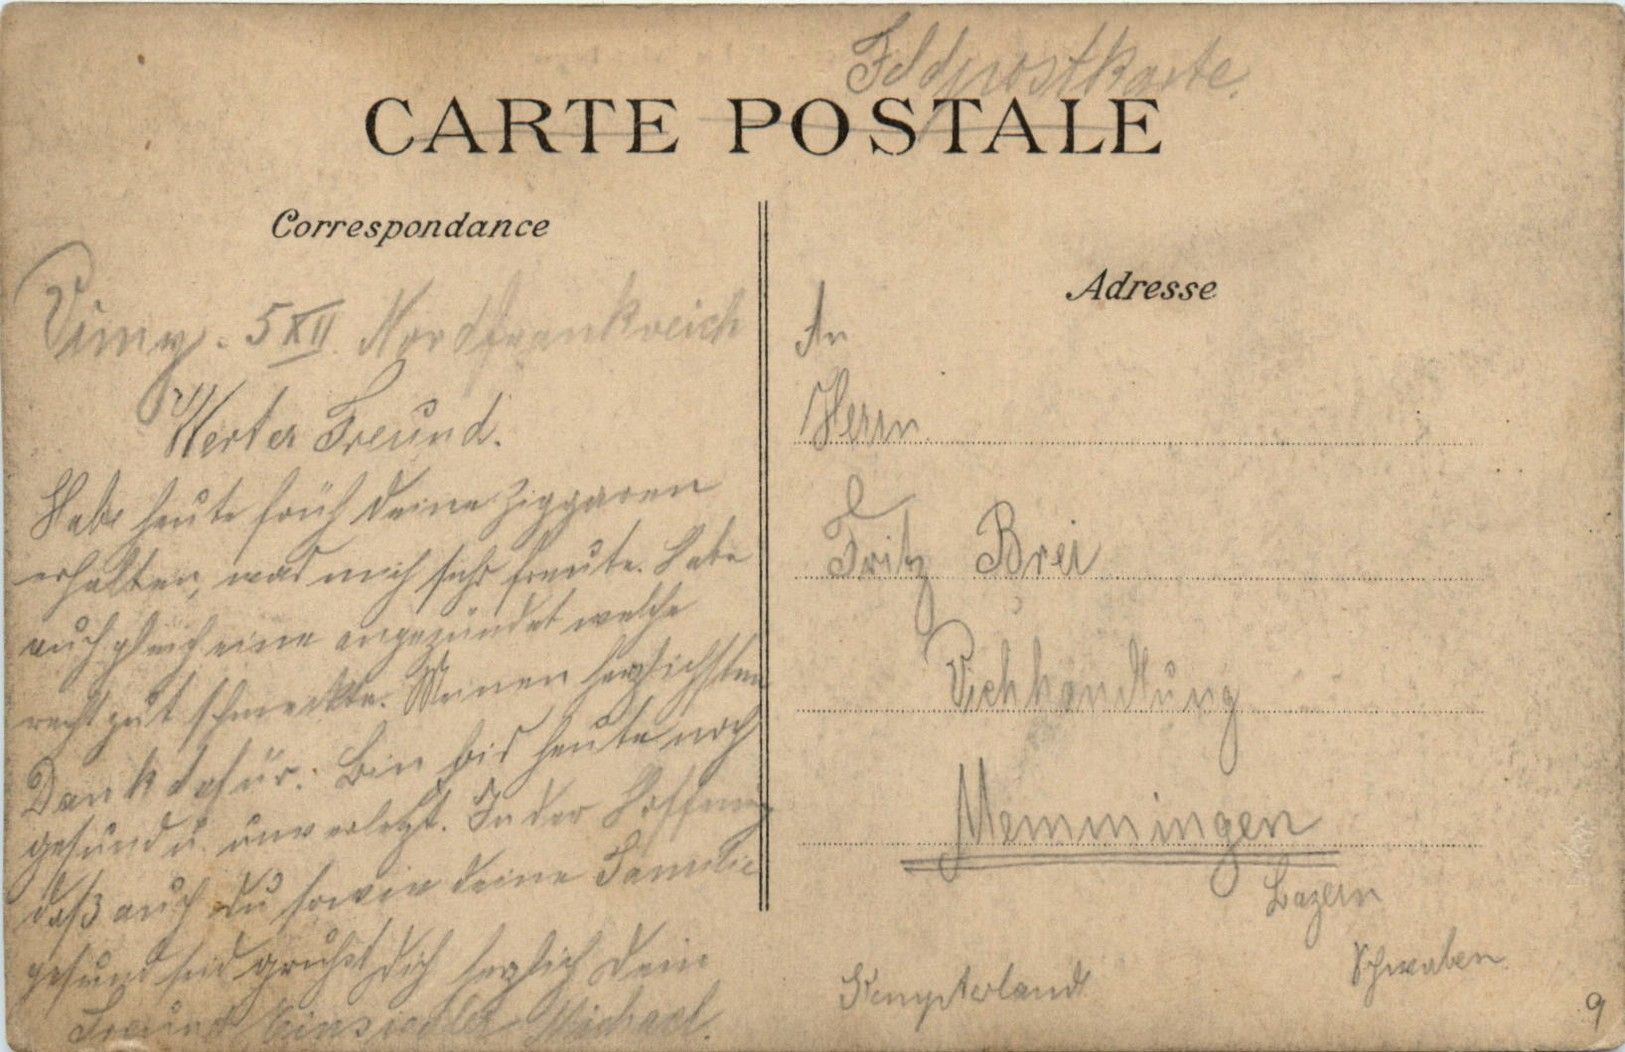 Feldpostkarte.
CARTE POSTALE
Correspondance
Vimy. 5 XII. Nordfrankreich
Werter Freund.
Habe heute früh deine Ziggaren
erhalten, was mich sehr freute. Habe
auch gleich eine angezündet welche
recht gut schmeckte. Meinen herzlichsten
Dank dafür. Bin bis heute noch
gesund u. unverletzt. In der Hoffnung
daß auch Du sowie deine Familie
gesund seid grußt Dich herzlich Dein
Freund Einsiedler Michael.
Adresse
An
Herrn
Fritz Brei
Viehhandlung
Memmingen
Bayern
Schwaben
9